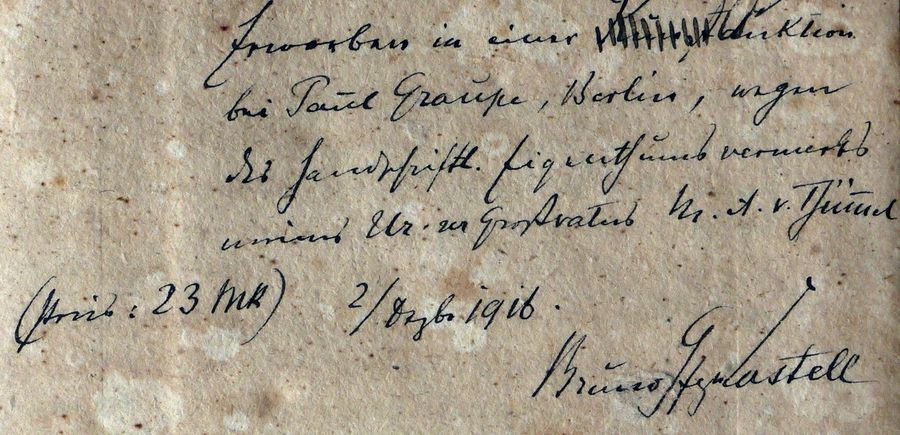 Erworben in einer Auktion
bei Paul Graupe, Berlin, wegen
des handschriftl. Eigenthumsvermerks
meines Ur-ur Großvaters M. A. v. Thümmel
(Preis: 23 Mk) 2/Dezbr. 1916.
Bruno